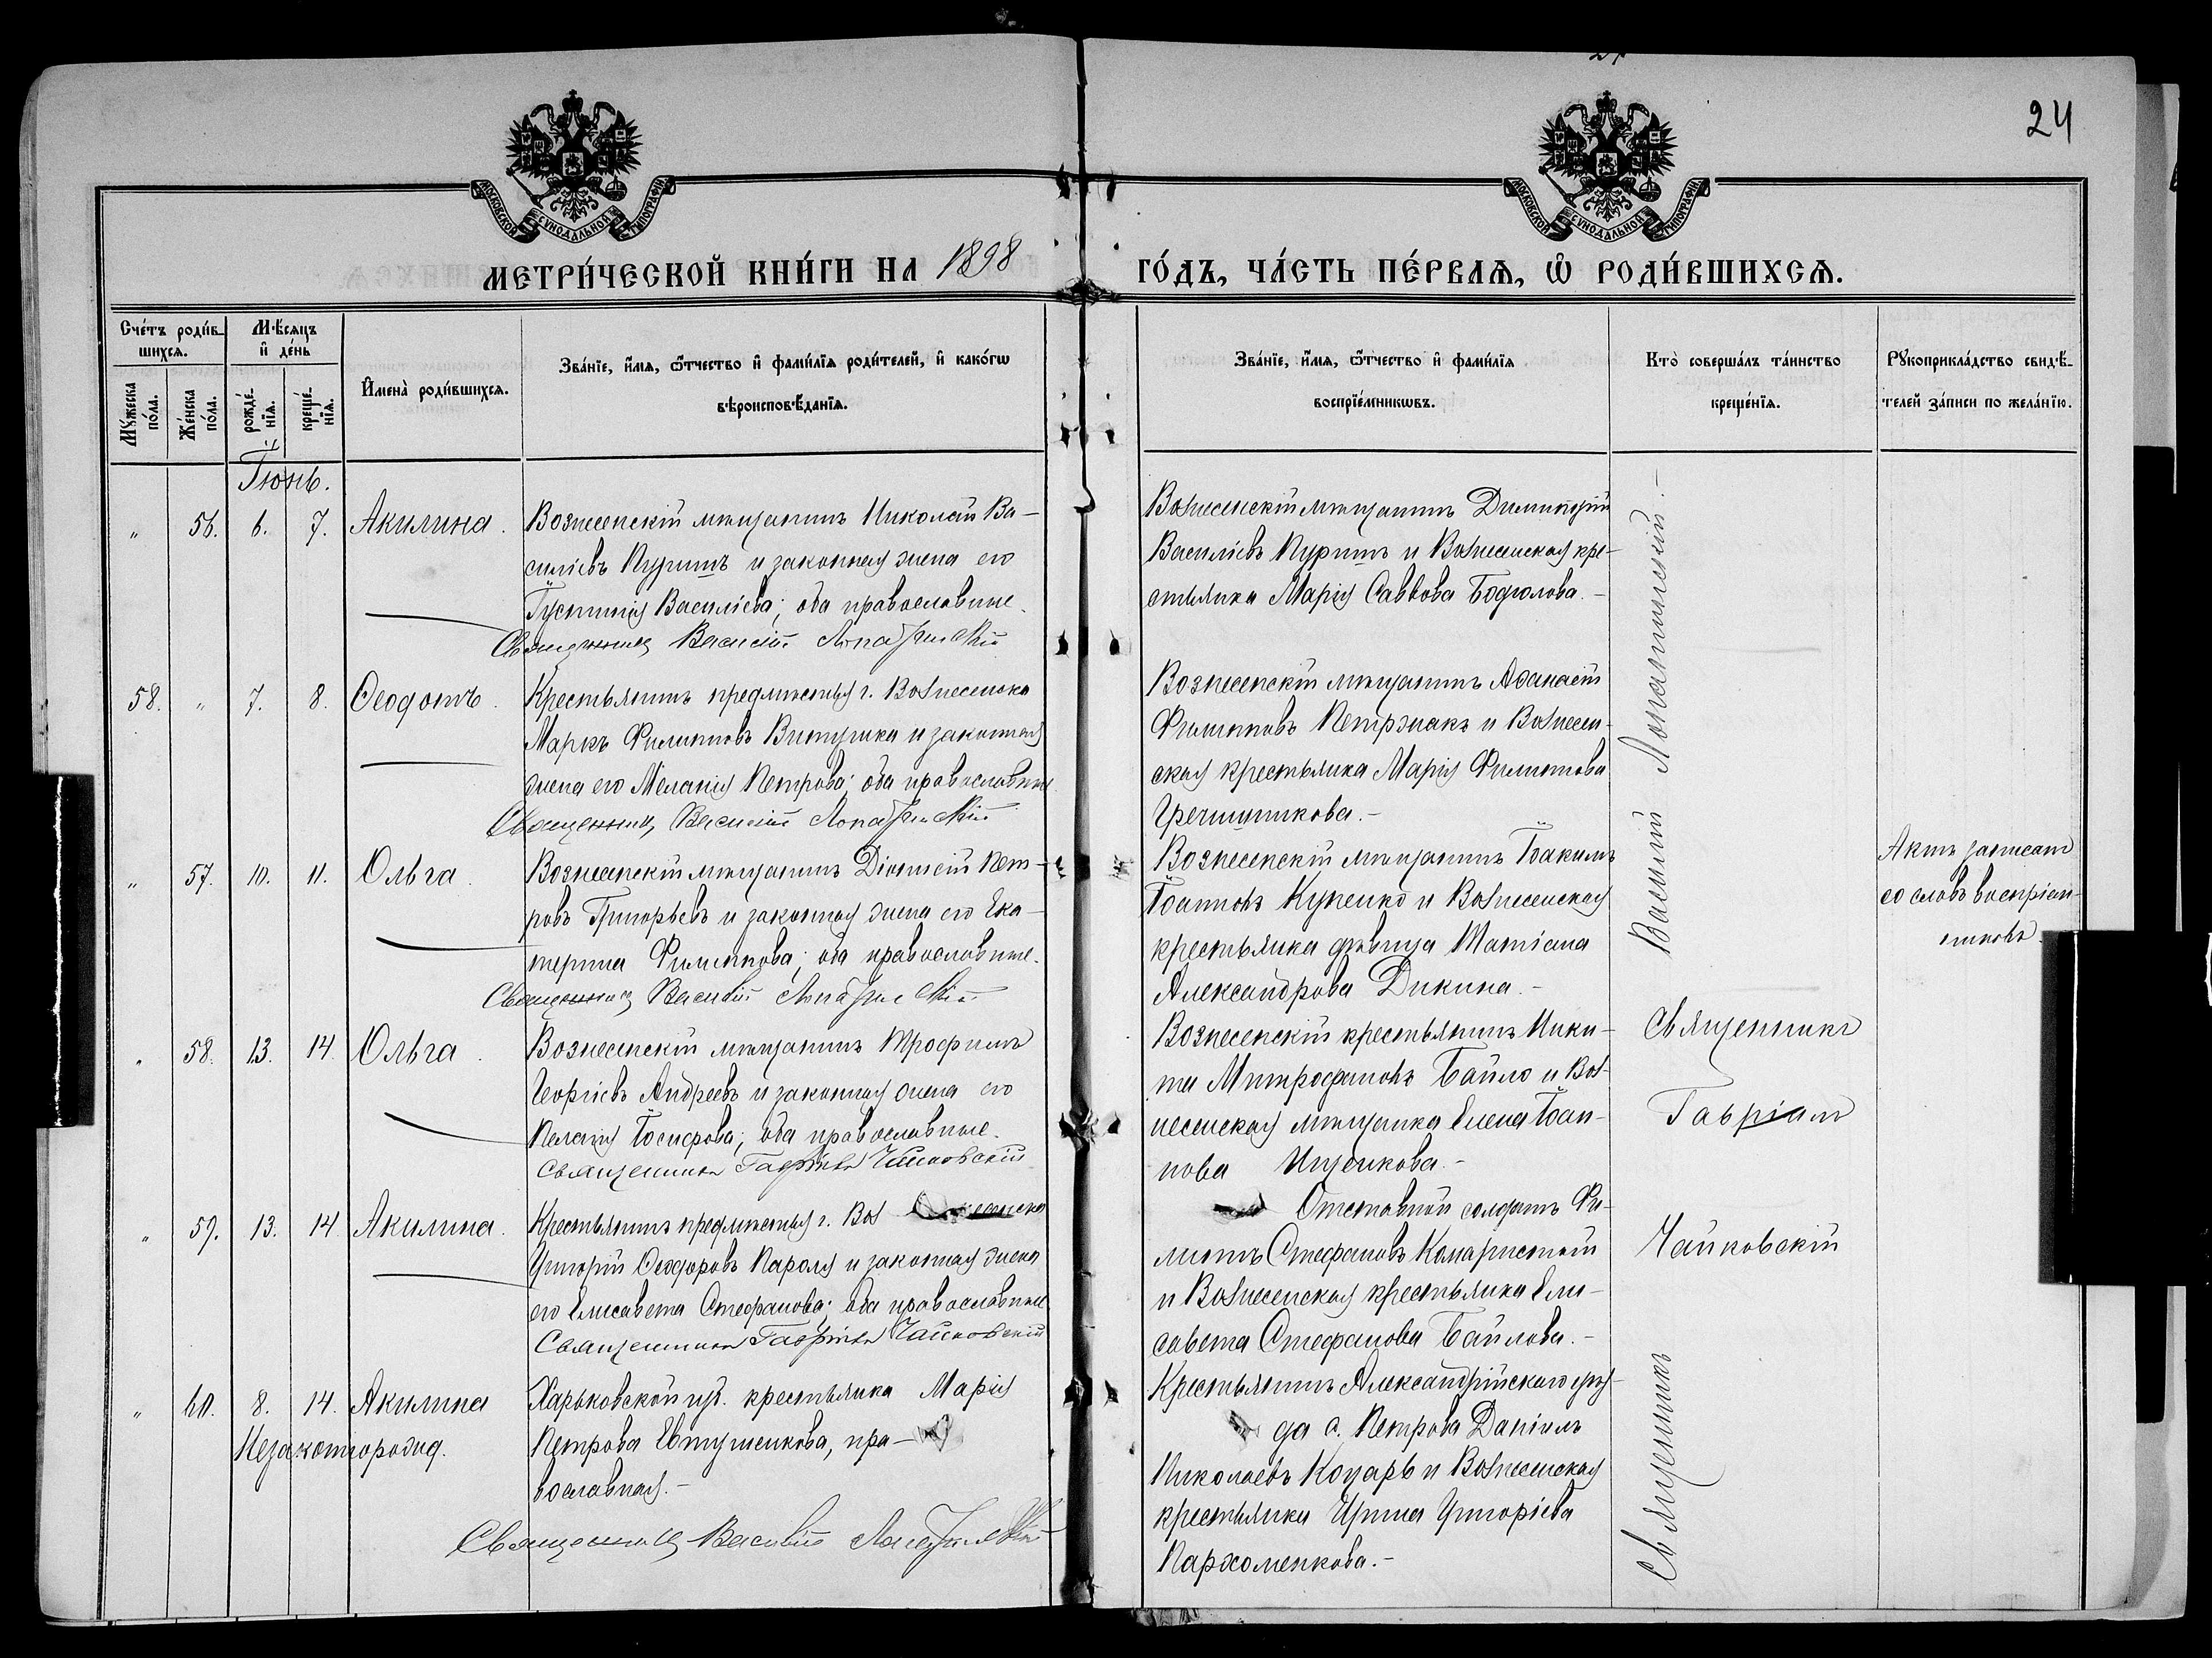 24
МОСКОВСКОЙ СѴНОДАЛЬНОЙ ТИПОГРАФІИ
МОСКОВСКОЙ СѴНОДАЛЬНОЙ ТИПОГРАФІИ
МЕТРИ́ЧЕСКОЙ КНИ́ГИ НА 1898 ГО́ДЪ, ЧА́СТЬ ПЕ́РВАѦ, Ѡ҆ РОДИ́ВШИХСѦ.
Сче́тъ роди́в-
шихсѧ.
Мꙋ́жеска по́ла.
Же́нска по́ла.
Мѣ́сяцъ
и҆ де́нь
рожде́-
нїѧ.
креще́-
нїѧ.
И҆мена̀ роди́вшихсѧ.
Зва́нїе, и҆́мѧ, ѻ҆́тчество и҆ фами́лїѧ роди́телей, и҆ како́гѡ
вѣроисповѣ́данїѧ.
Зва́нїе, и҆́мѧ, ѻ҆́тчество и҆ фами́лїѧ
воспрїе́мникѡвъ.
Кто̀ соверша́лъ та́инство
креще́нїѧ.
Рꙋкоприкла́дство свидѣ́-
телей за́писи по жела́нїю.
Іюнь.
" 56. 6. 7. Акилина. Вознесенскій мѣщанинъ Николай Ва-
силіевъ Пуритъ и законная жена его
Іустинія Василіева; оба православные.
Священникъ Василій Лопатинскій
Вознесенскій мѣщанинъ Димитрій
Василіевъ Пуритъ и Вознесенская кре-
стьянка Марія Саввова Бодюлова.-
58. " 7. 8. Ѳеодотъ. Крестьянинъ предмѣстья г. Вознесенска
Маркъ Филипповъ и законная
жена его Меланія Петрова; оба православные
Священникъ Василій Лопатинскій
Вознесенскій мѣщанинъ Аѳанасій
Филипповъ и Вознесен-
ская крестьянка Марія Филиппова
Гречишникова.-
" 57. 10. 11. Ольга. Вознесенскій мѣщанинъ Діонисій Пет-
ровъ Григорьевъ и законная жена его Ека-
терина Филиппова; оба православные.
Священникъ Василій Лопатинскій
Вознесенскій мѣщанинъ Іоакимъ
Іоанновъ Куценко и Вознесенская
крестьянка дѣвица Татіана
Александрова Дикина.-
Актъ записанъ
со словъ воспріем-
никовъ.
" 58. 13. 14. Ольга. Вознесенскій мѣщанинъ Трофимъ
Георгіевъ Андреевъ и законная жена его
Пелагія Іосифова; оба православные.
Священникъ Гавріилъ Чайковскій
Вознесенскій крестьянинъ Ники-
та Митрофановъ Байло и Воз-
несенская мѣщанка Елена Іоан-
нова Ищенкова.-
" 59. 13. 14 Акилина. Крестьянинъ предмѣстья г. Вознесенска
Григорій Ѳеодоровъ Пароля и законная жена
его Елисавета Стефанова; оба православные
Священникъ Гавріилъ Чайковскій
Отставной солдатъ Фи-
липпъ Стефановъ
и Вознесенская крестьянка Ели-
савета Стефанова Байлова.-
" 60. 8. 14. Акилина Харьковской губ. крестьянка Марія
Незаконнорожд. Петрова Евтушенкова, пра-
вославная.-
Священникъ Василій Лопатинскій
Крестьянинъ Александрійскаго уѣз-
да с. Петрова Даніилъ
Николаевъ Коцарь и Вознесенская
крестьянка Ирина Григоріева
Пархоменкова.-
Священникъ
Гавріилъ
Чайковскій
Священникъ
Василій Лопатинскій.-